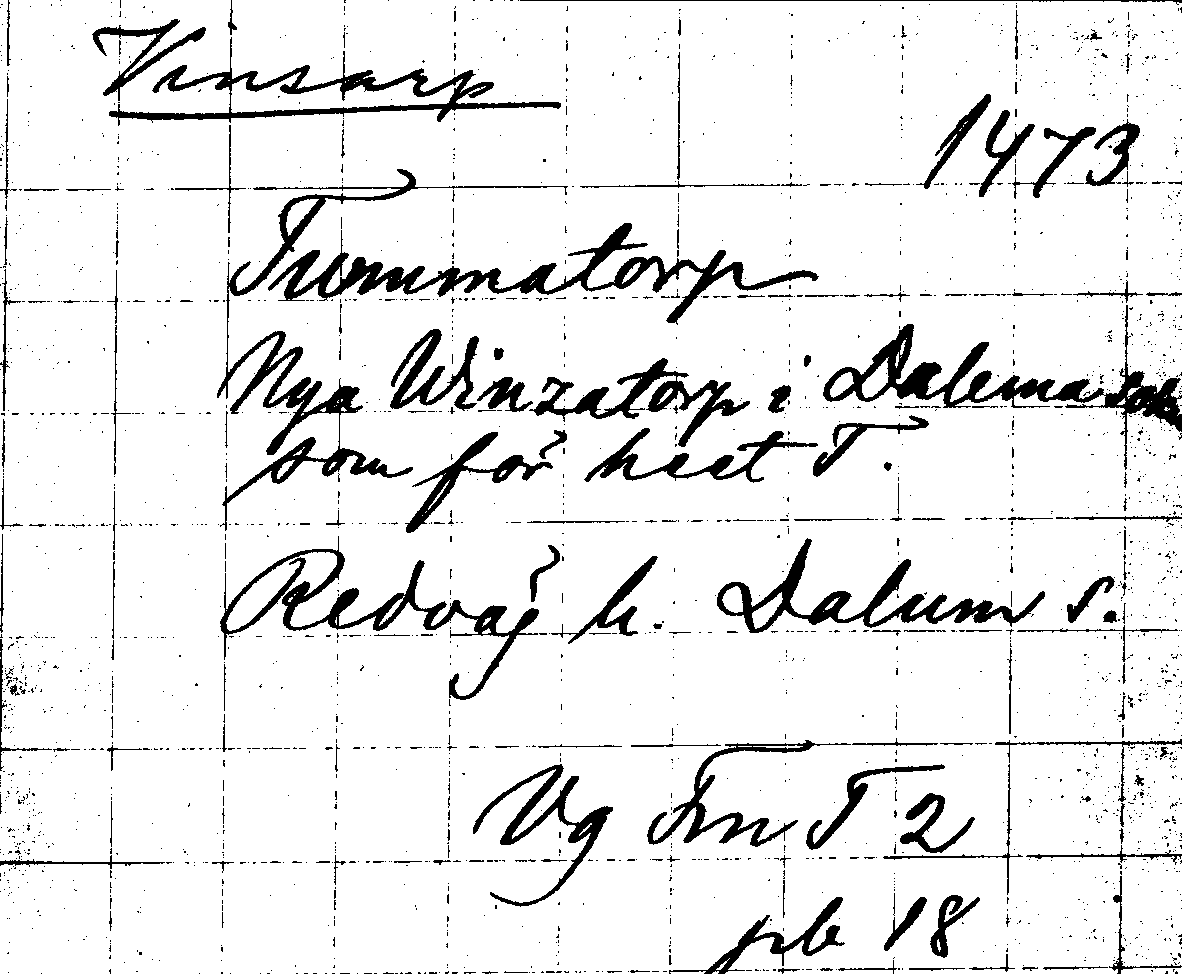 Vinsarp
1473
Tummatorp
Nya Winzatorp i Dalema sokn
som för heet T.
Redväg h. Dalum s.
Vg Fmn T 2
pb 18